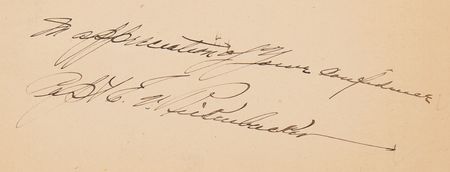 In appreciation of Your Confidence
Capt E. V. Rickenbacker